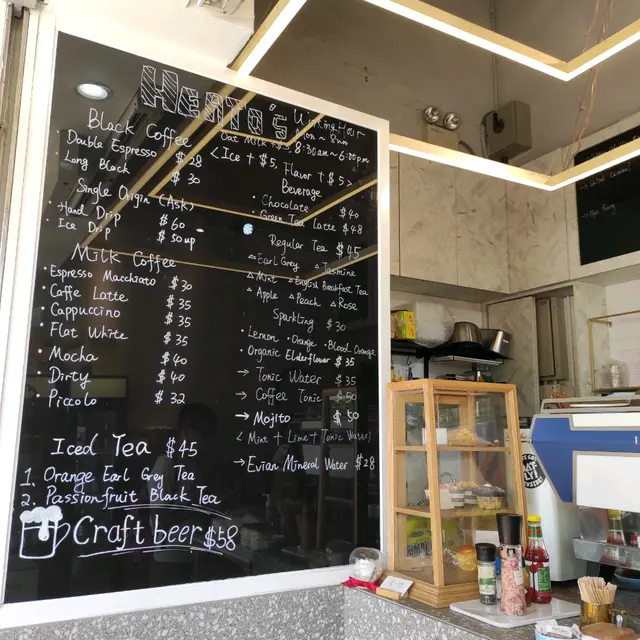 HEATO's
Working Hour
Mon ~ Sun
8:30am~6:00pm
Oat Milk +5
<Ice + $5, Flavor + $5>
Black Coffee
· Double Espresso $28
· Long Black $30
Single Origin (Ask)
· Hand Drip $60
· Ice Drip $50up
Milk Coffee
· Espresso Macchiato $30
· Caffe Latte $35
· Cappuccino $35
· Flat White $35
· Mocha $40
· Dirty $40
· Piccolo $32
Iced Tea $45
1. Orange Earl Grey Tea
2. Passionfruit Black Tea
Craft beer $58
Beverage
· Chocolate $40
· Green Tea Latte $48
Regular Tea $45
△ Earl Grey △ Jasmine
△ Mint △ English Breakfast Tea
△ Apple △ Peach △ Rose
Sparkling $30
· Lemon · Orange · Blood Orange
· Organic Elderflower $35
→ Tonic Water $35
→ Coffee Tonic $50
→ Mojito $50
(Mint + Lime + Tonic Water)
→ Evian Mineral Water $28